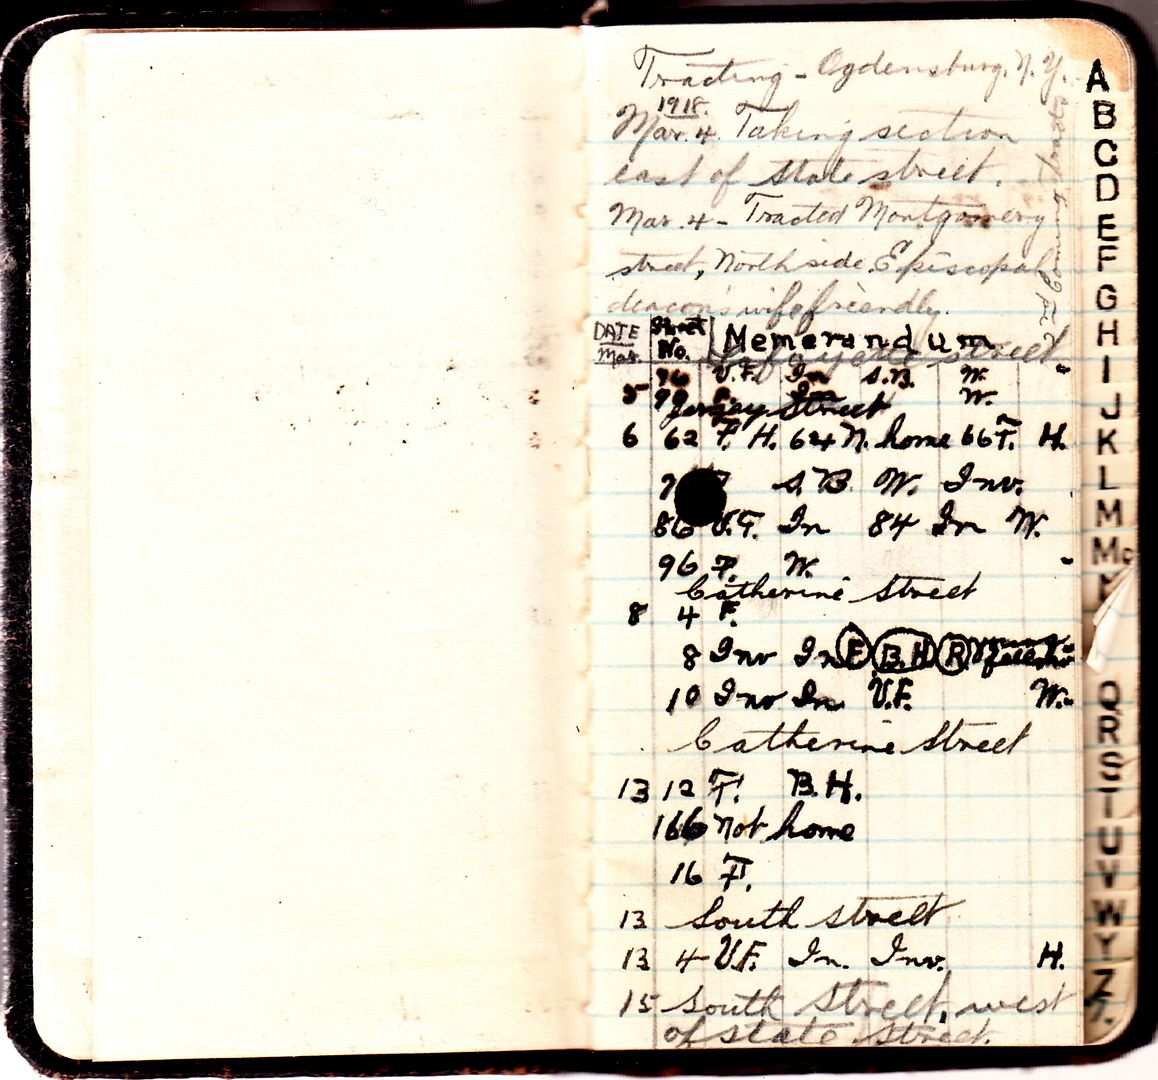 Tracting - Ogdensburg, N.Y.
1918.
Mar. 4. Taking section
east of State street.
Mar. 4 - Tracted Montgomery
street, North side. Episcopal
deacon's wife friendly.
DATE Street No. Memerandum
Mar. Lafayette street
76 V.F. In S.B. W.
5 79 F. In W.
Jersay Street
6 62 F. H. 64 N. home 66 F. H.
S.B W. Inv.
86 V.F. In 84 In W.
96 F. W.
Catherine Street
8 4 F.
8 Inv In F. B.H R young fellow
10 Inv In V.F. W.
Catherine Street
13 12 F. B.H.
166 Not home
16 F.
13 South street
13 4 V.F. In. Inv. H.
15 South Street, west
of state street.
A
B
C
D
E
F
G
H
I
J
K
L
M
Mc
N
Q
R
S
T
U
V
W
Y
Z